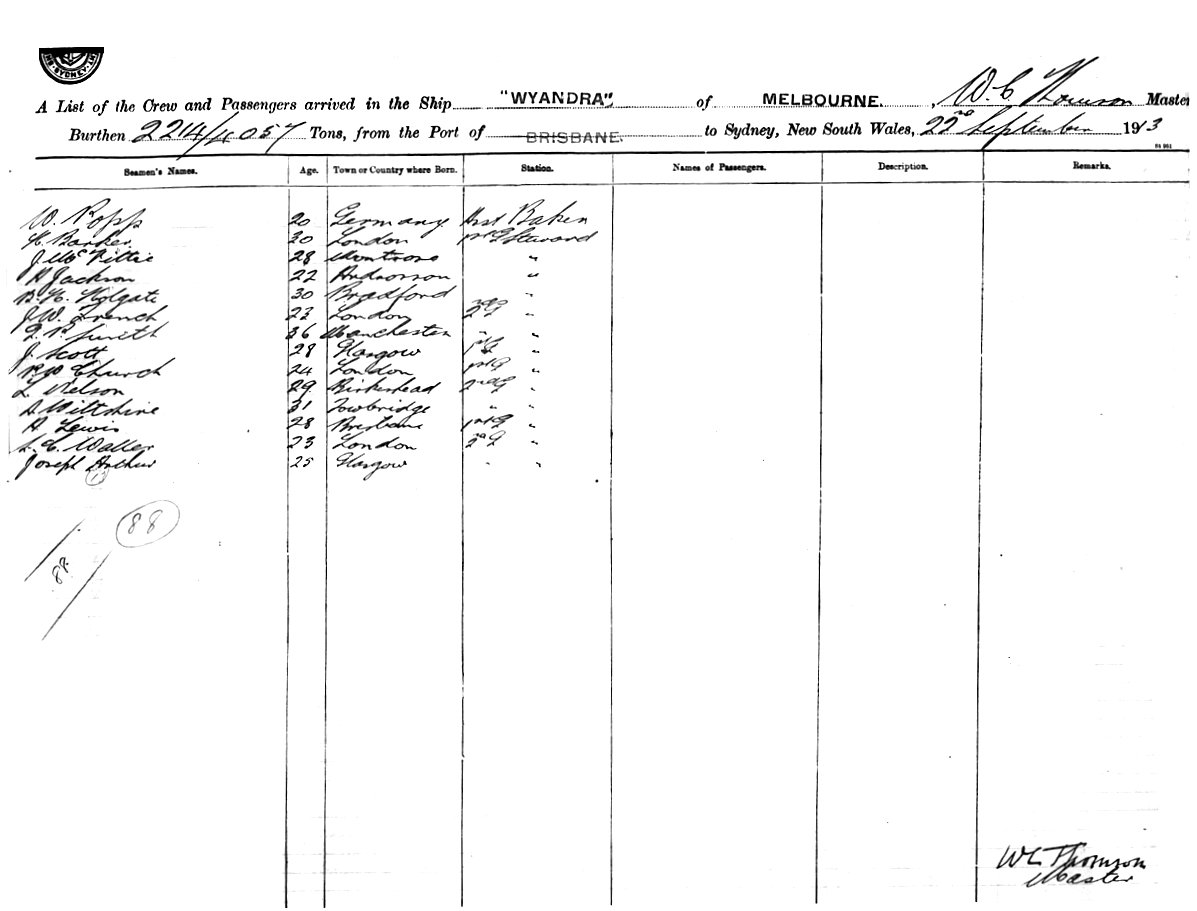 SYDNEY
A List of the Crew and Passengers arrived in the Ship "WYANDRA" of MELBOURNE. , W. C. Thomson Master
Burthen 2214/4057 Tons, from the Port of BRISBANE. to Sydney, New South Wales, 22nd September 1913
Seamen's Names. Age. Town or Country where Born. Station. Names of Passengers. Description. Remarks.
W. Popp 20 Germany Asst Baker
H. Barker 30 London 1st G Steward
J. McFittie 28 Montrose "
A Jackson 22 "
B. H. Holgate 30 Bradford "
J. W. French 23 London 2nd G "
Smith 36 Manchester " "
J. Scott 28 Glasgow 1st G "
Church 24 London 1st G "
L. Nelson 29 Birkenhead 2nd G "
A Wiltshire 31 Towbridge " "
A. Lewis 28 Brisbane 1st G "
C. Waller 23 London 2nd G "
Joseph Arthur 25 Glasgow " "
88
87
W C Thomson
Master